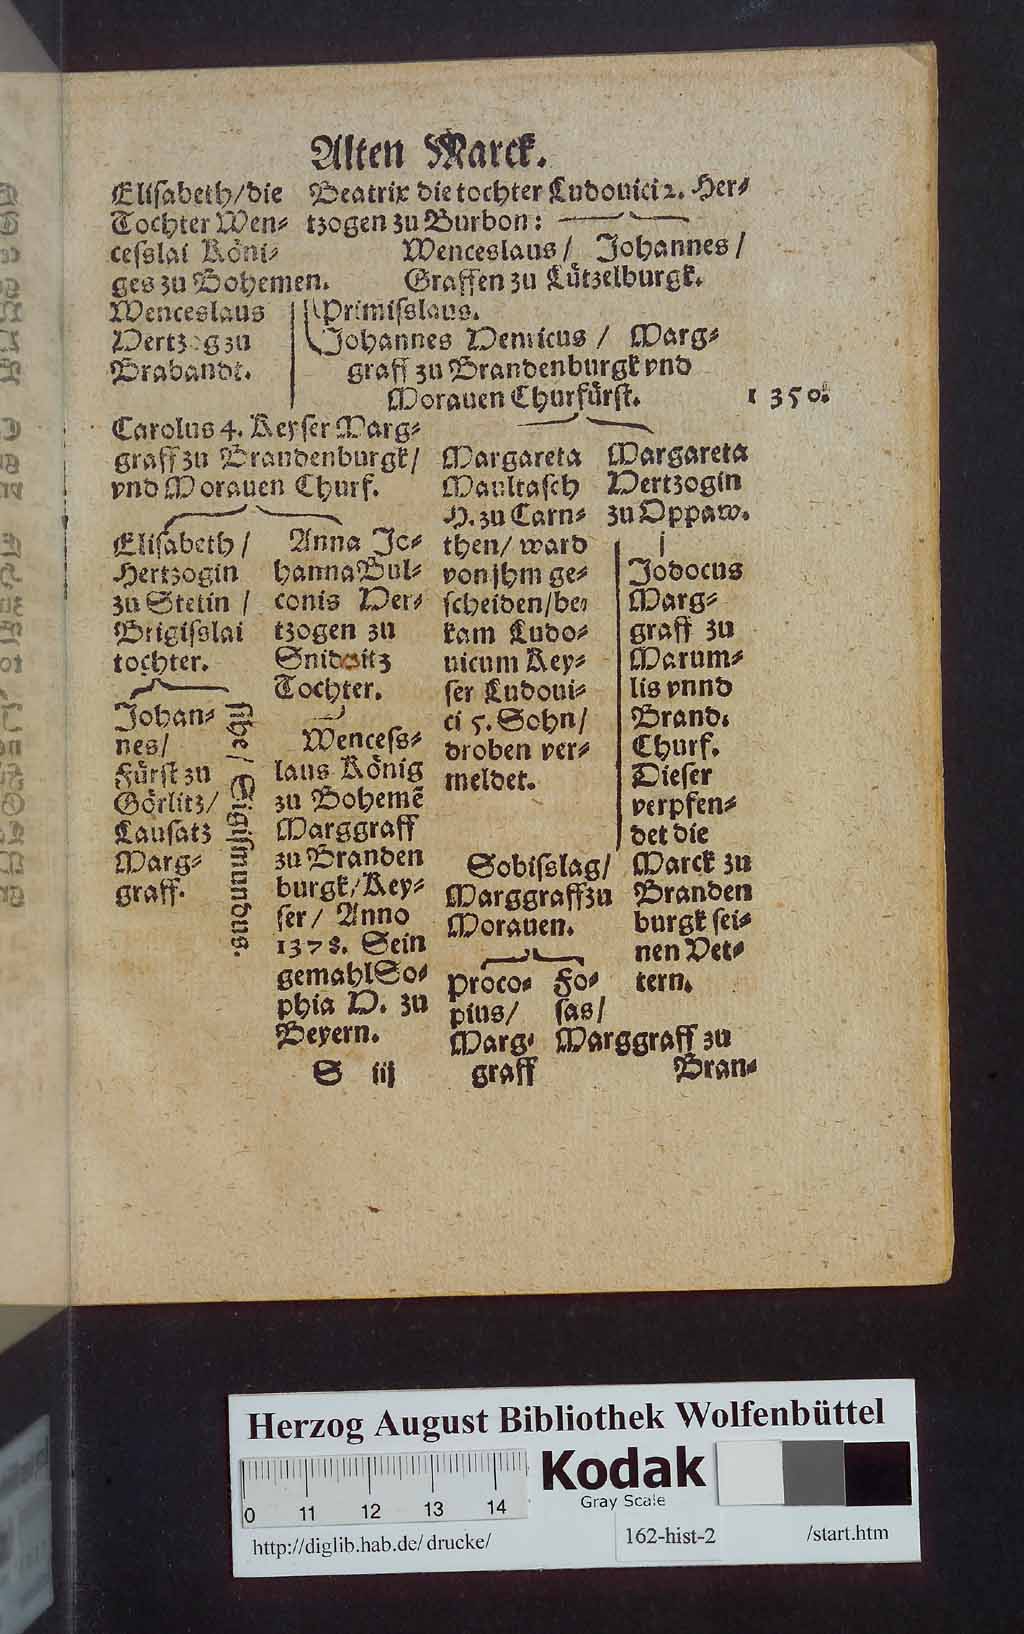 Alten Marck.
Elisabeth/die
Tochter Wen-
cesslai Köni-
ges zu Bohemen.
Beatrix die tochter Ludouici 2. Her-
tzogen zu Burbon:
Wenceslaus / Johannes /
Graffen zu Lützelburgk.
Wenceslaus
Hertzog zu
Brabandt.
Primisslaus.
Johannes Henricus / Marg-
graff zu Brandenburgk vnd
Morauen Churfürst.
1350.
Carolus 4. Keyser Marg-
graff zu Brandenburgk/
vnd Morauen Churf.
Elisabeth /
Hertzogin
zu Stetin /
Brigisslai
tochter.
Johan-
nes/
Fürst zu
Görlitz/
Lausatz
Marg-
graff.
sibe / Sigismundus.
Anna Jo-
hanna Bul-
conis Her-
tzogen zu
Snidnitz
Tochter.
Wencess-
laus König
zu Bohemẽ
Marggraff
zu Branden
burgk/Key-
ser / Anno
1378. Sein
gemahl So-
phia H. zu
Beyern.
Margareta
Maultasch
H. zu Carn-
then/ ward
von jhm ge-
scheiden/be-
kam Ludo-
uicum Key-
ser Ludoui-
ci 5. Sohn/
droben ver-
meldet.
Margareta
Hertzogin
zu Oppaw.
Jodocus
Marg-
graff zu
Marum-
lis vnnd
Brand.
Churf.
Dieser
verpfen-
det die
Marck zu
Branden
burgk sei-
nen Vet-
tern.
Sobisslag/
Marggraff zu
Morauen.
Proco-
pius/
Marg-
graff
Jo-
sas/
Marggraff zu
Bran-
S iij
Herzog August Bibliothek Wolfenbüttel
0 11 12 13 14
Kodak
Gray Scale
http://diglib.hab.de/drucke/
162-hist-2
/start.htm